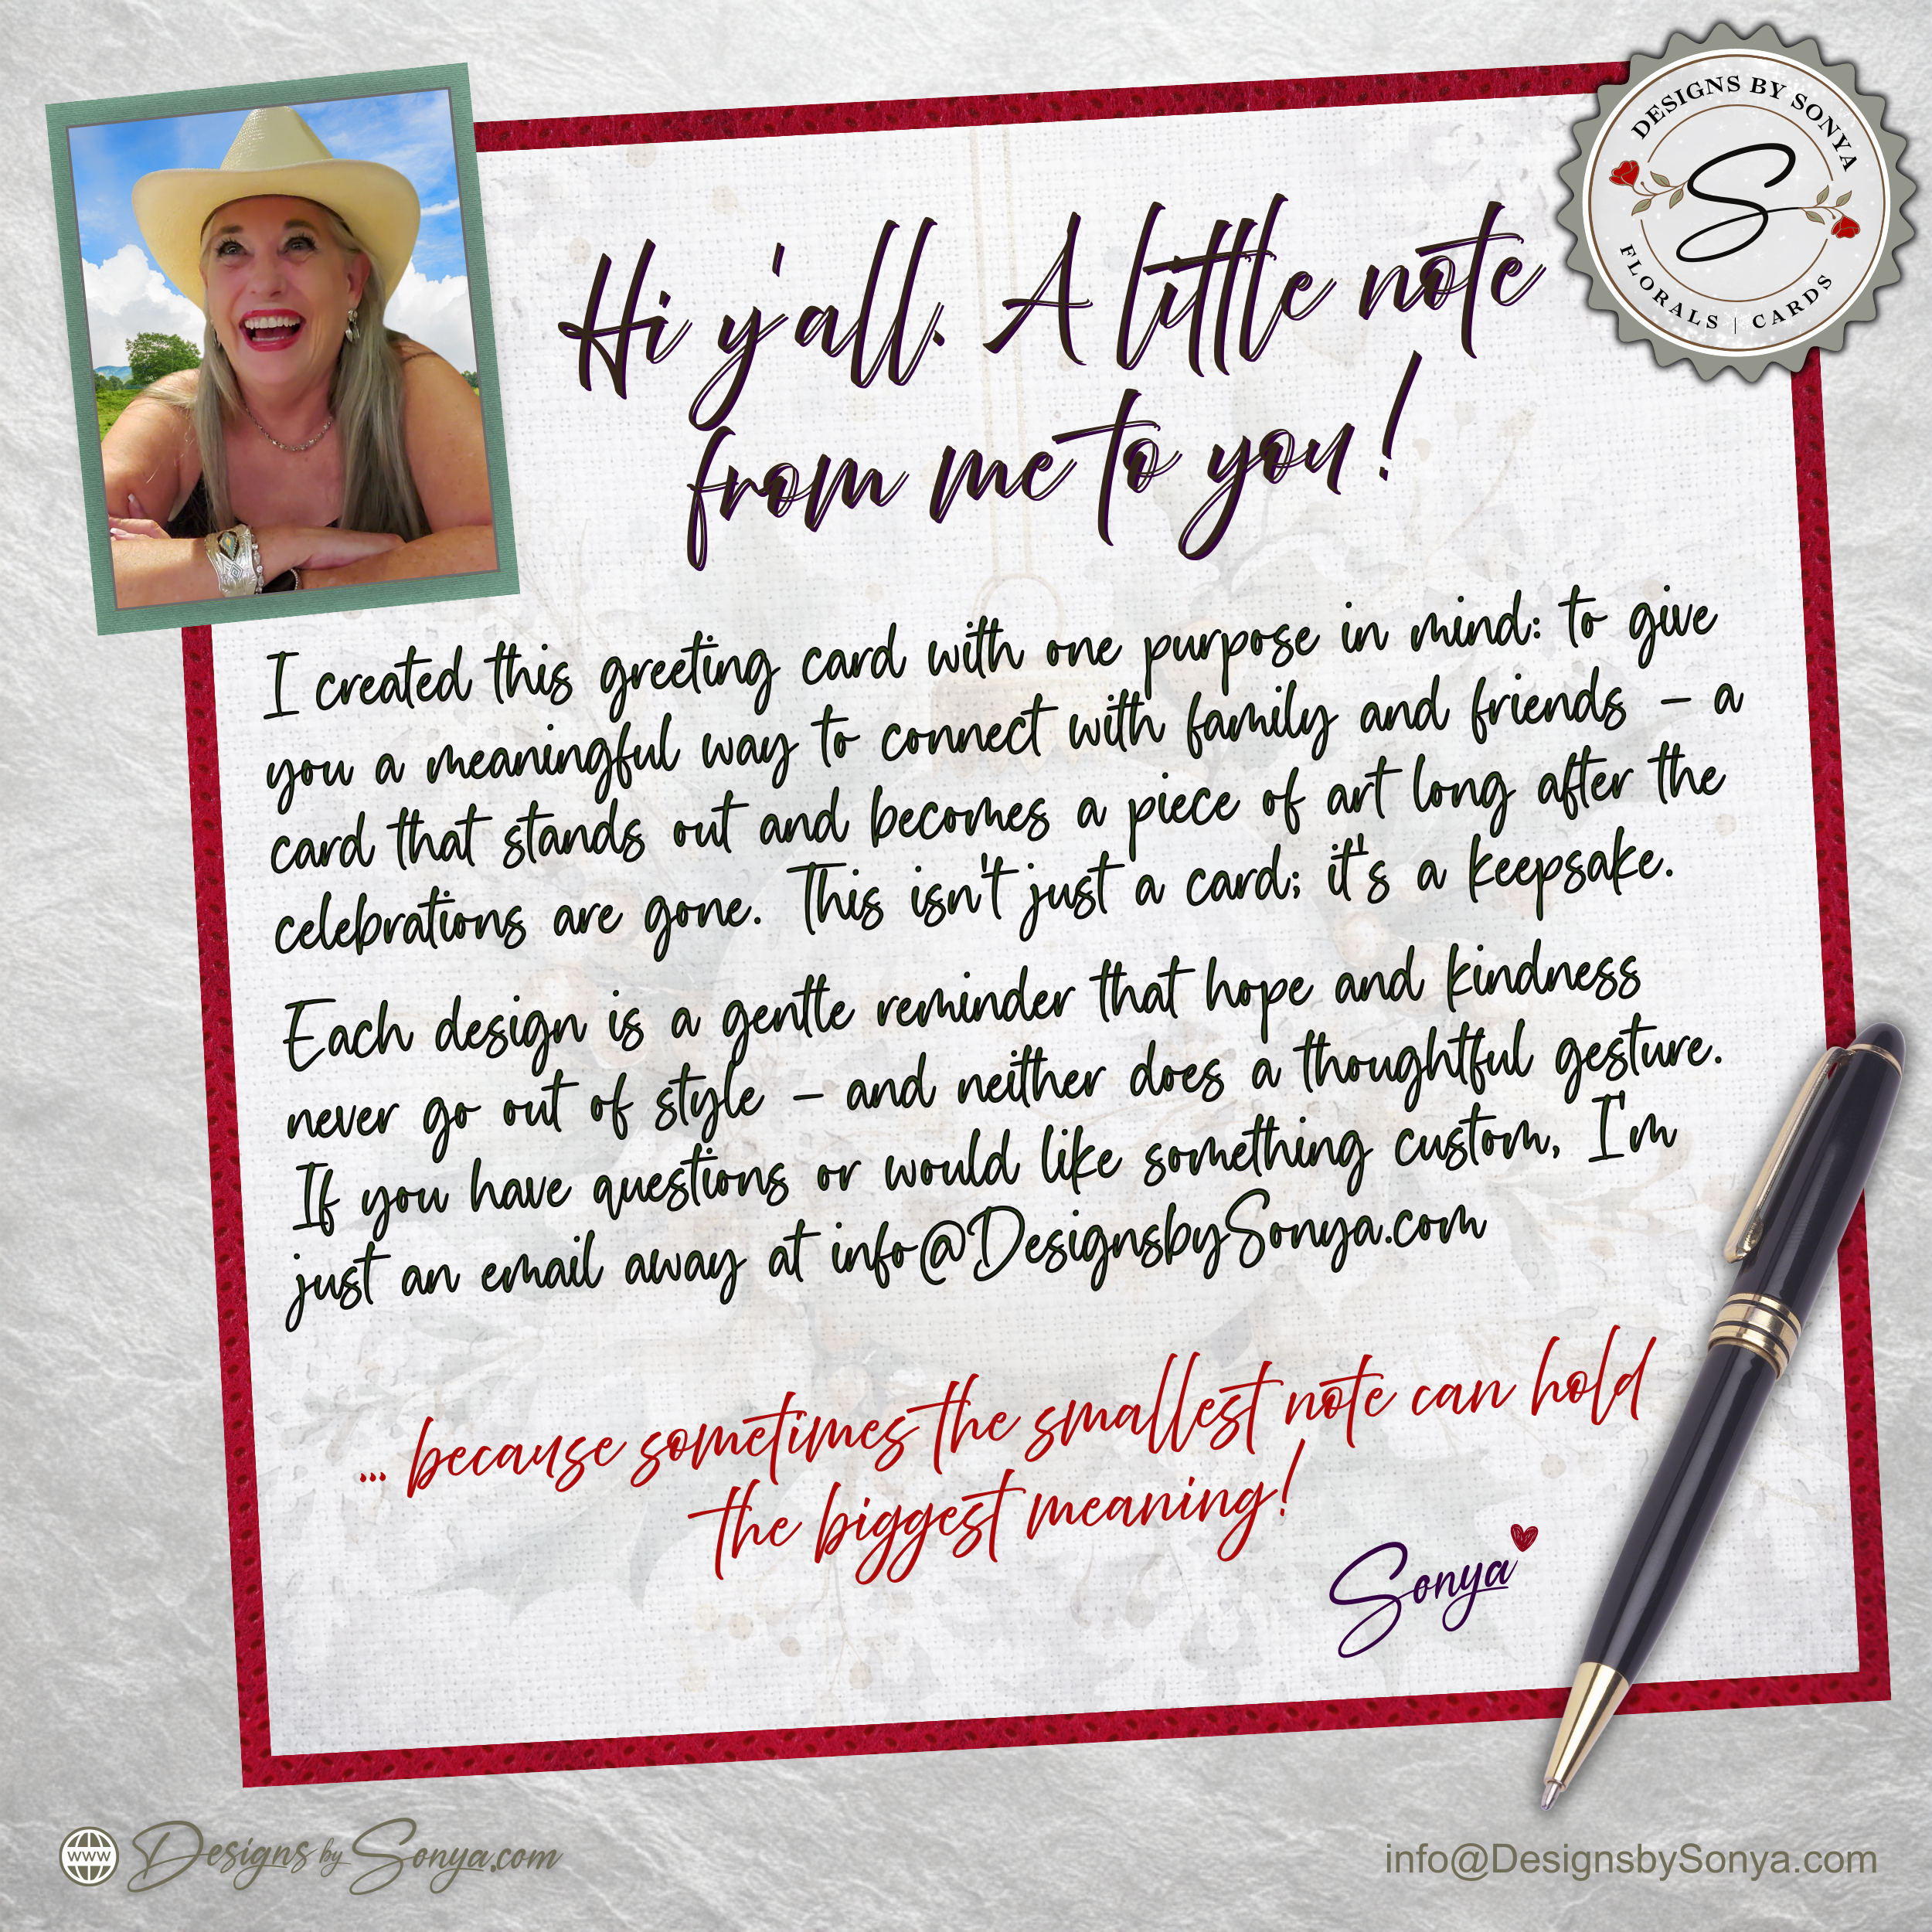 DESIGNS BY SONYA
S
FLORALS | CARDS
Hi y'all. A little note
from me to you!
I created this greeting card with one purpose in mind: to give
you a meaningful way to connect with family and friends – a
card that stands out and becomes a piece of art long after the
celebrations are gone. This isn't just a card; it's a keepsake.
Each design is a gentle reminder that hope and kindness
never go out of style – and neither does a thoughtful gesture.
If you have questions or would like something custom, I'm
just an email away at info@DesignsbySonya.com
... because sometimes the smallest note can hold
the biggest meaning!
Sonya
www DesignsbySonya.com
info@DesignsbySonya.com